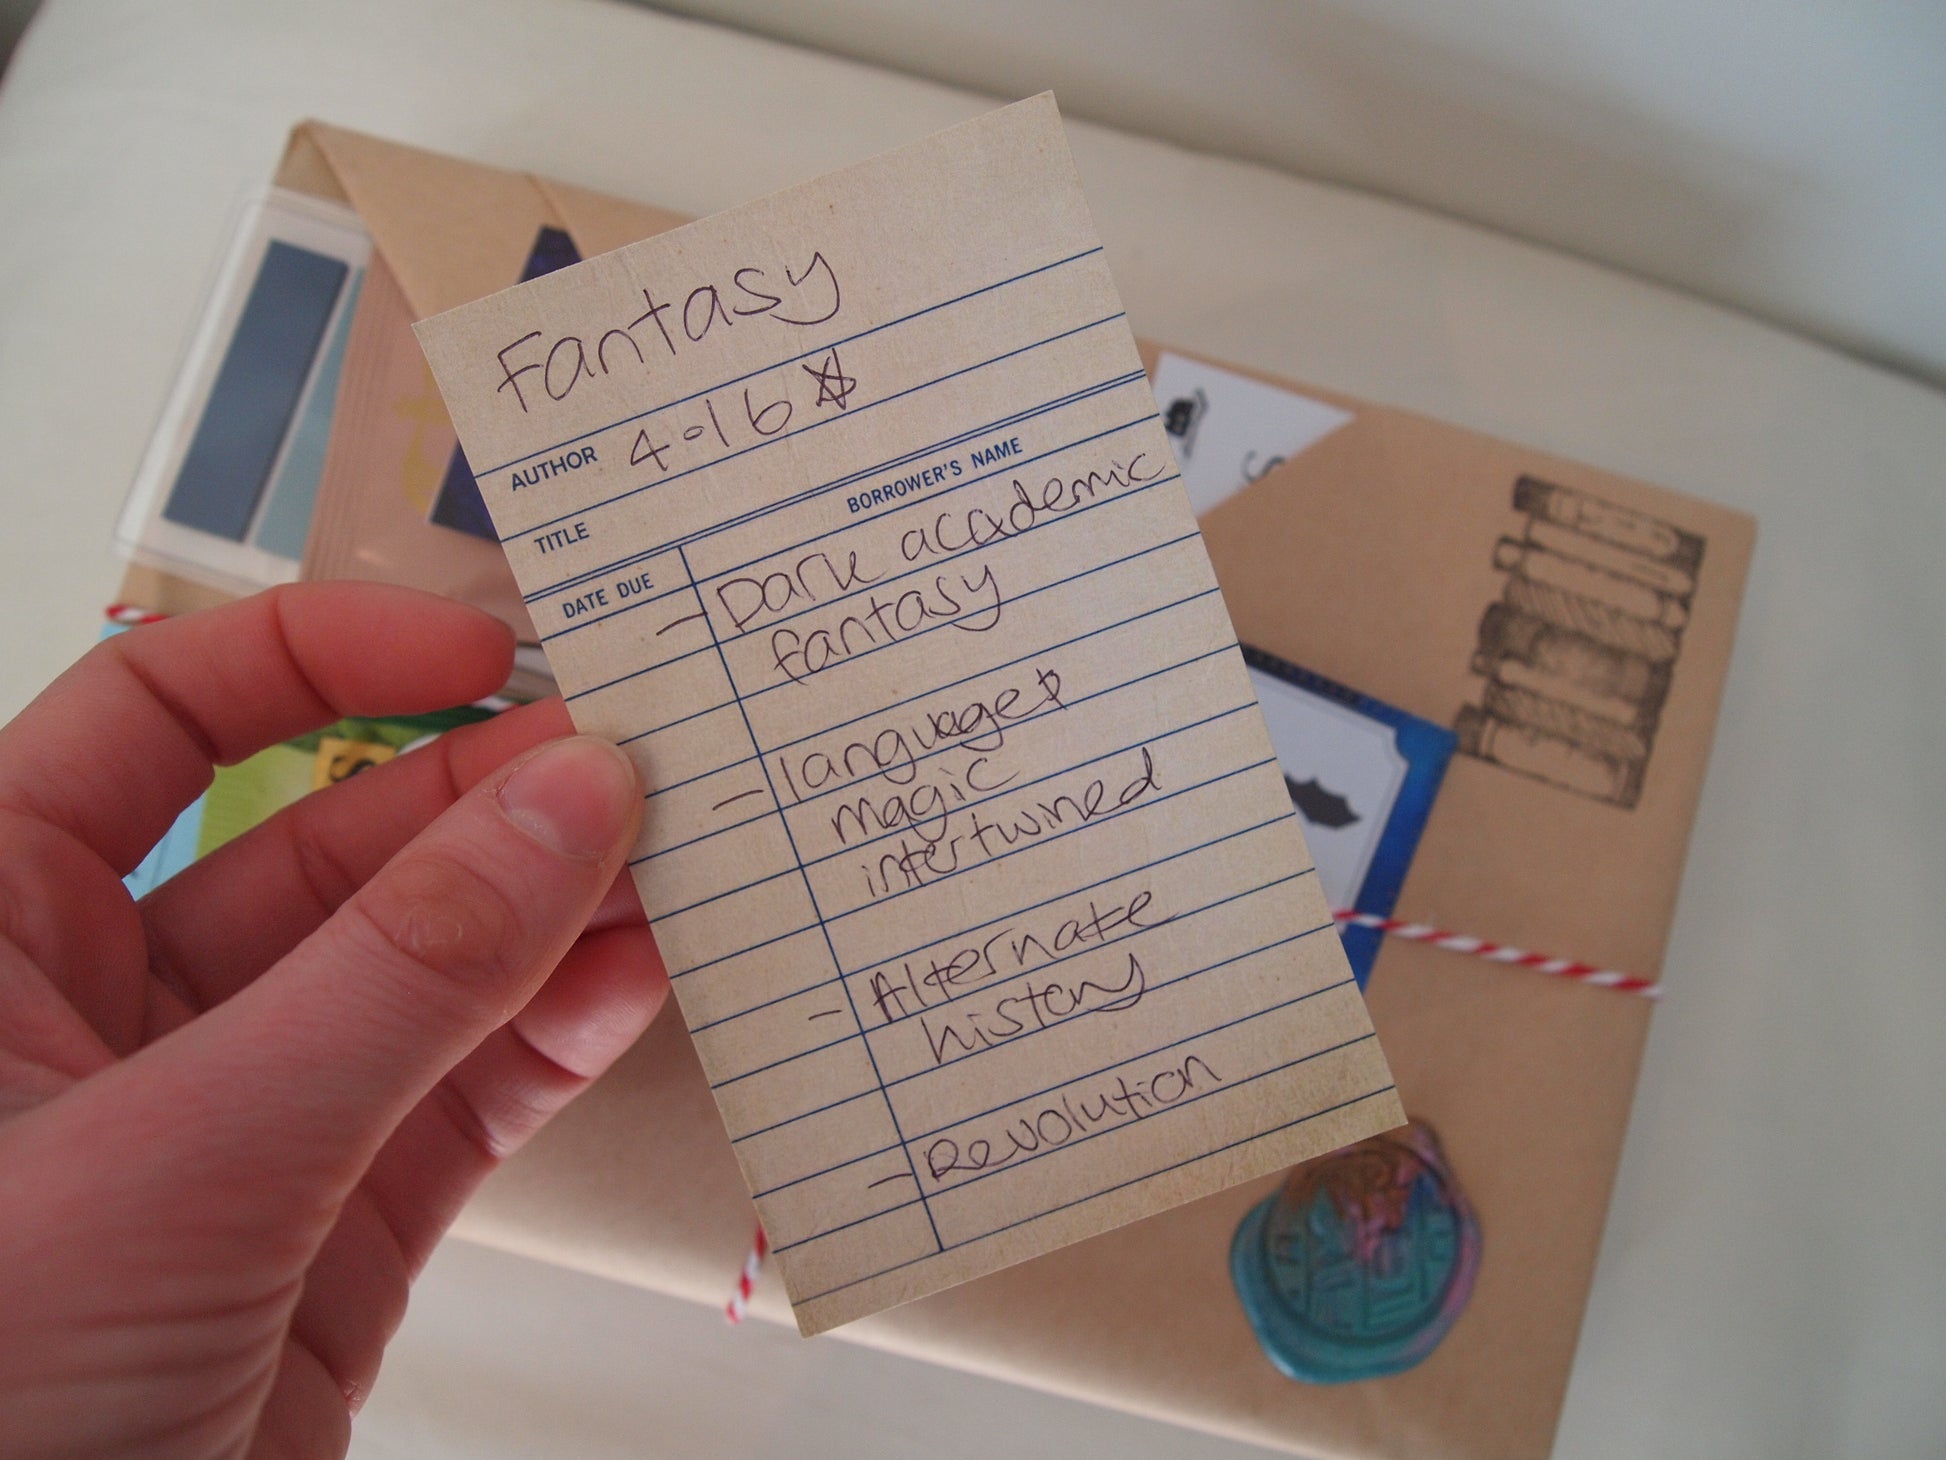 Fantasy
AUTHOR 4.16 ☆
TITLE
DATE DUE BORROWER'S NAME
- Dark academic
fantasy
- language &
magic
intertwined
- Alternate
history
- Revolution
S